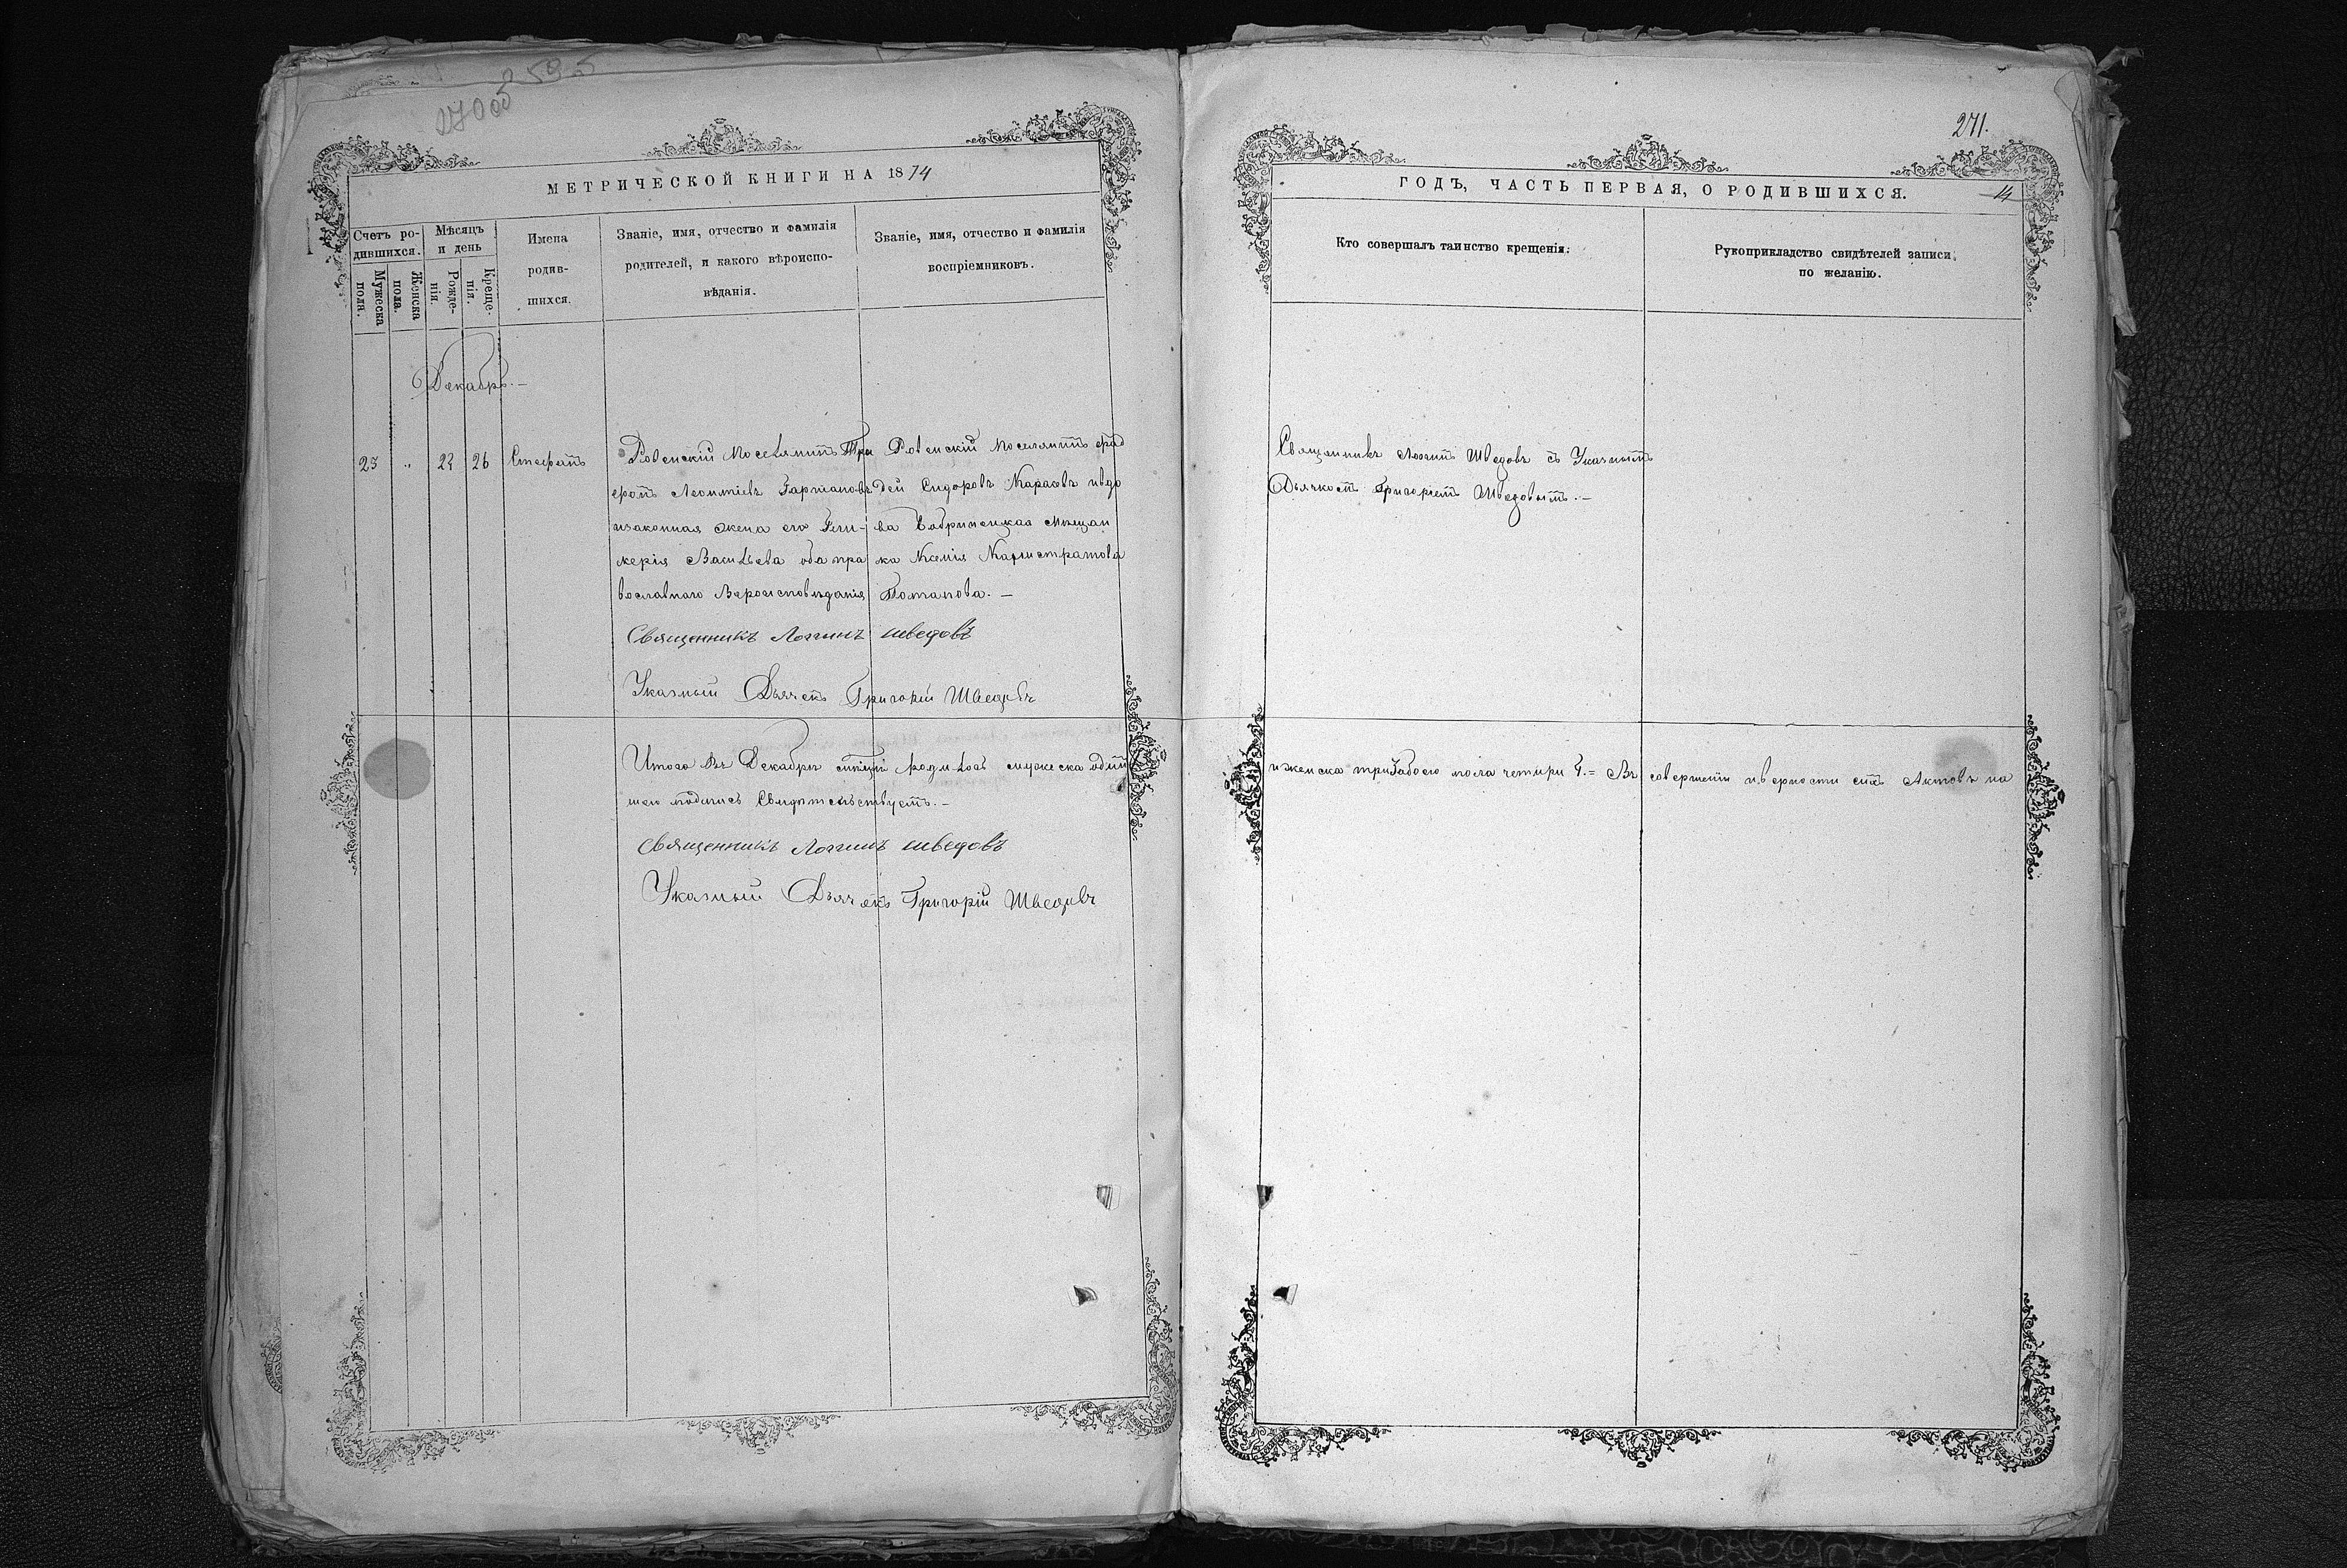 270 об
595
МЕТРИЧЕСКОЙ КНИГИ НА 1874
Счетъ ро-
дившихся.
Мужеска
пола.
Женска
пола.
Мѣсяцъ
и день
Рожде-
нія.
Креще-
нія.
Имена
родив-
шихся.
Званіе, имя, отчество и фамилія
родителей, и какого вѣроиспо-
вѣданія.
Званіе, имя, отчество и фамилія
воспріемниковъ.
Декабрь.
23 " 22 26 Стефанъ
Ровенскій Поселянинъ Три
фонъ Леонтіевъ
изаконная жена его Гли-
керія Васильева оба пра
вославнаго Вероисповѣданія
Ровенскій Поселянинъ Фад
дей Сидоровъ Карасевъ ивдо
ва Бобринецкая Мѣщан
ка Ксенія Калистратова
Потапова. —
Священникъ Логгинъ Шведовъ
Указный Дьячекъ Григорій Шведовъ
Итого Въ Декабрѣ мѣсяцѣ родилось мужеска одинъ
шею подписъ Свидѣтельствуемъ. —
Священникъ Логгинъ Шведовъ
Указный Дьячекъ Григорій Шведовъ
271.
14
ГОДЪ, ЧАСТЬ ПЕРВАЯ, О РОДИВШИХСЯ.
Кто совершалъ таинство крещенія.
Рукоприкладство свидѣтелей записи
по желанію.
Священникъ Логгинъ Шведовъ съ Указнымъ
Дьячкомъ Григоріемъ Шведовымъ. —
иженска три обоего пола четыри 4. = Въ совершеніи иверности сихъ Актовъ на